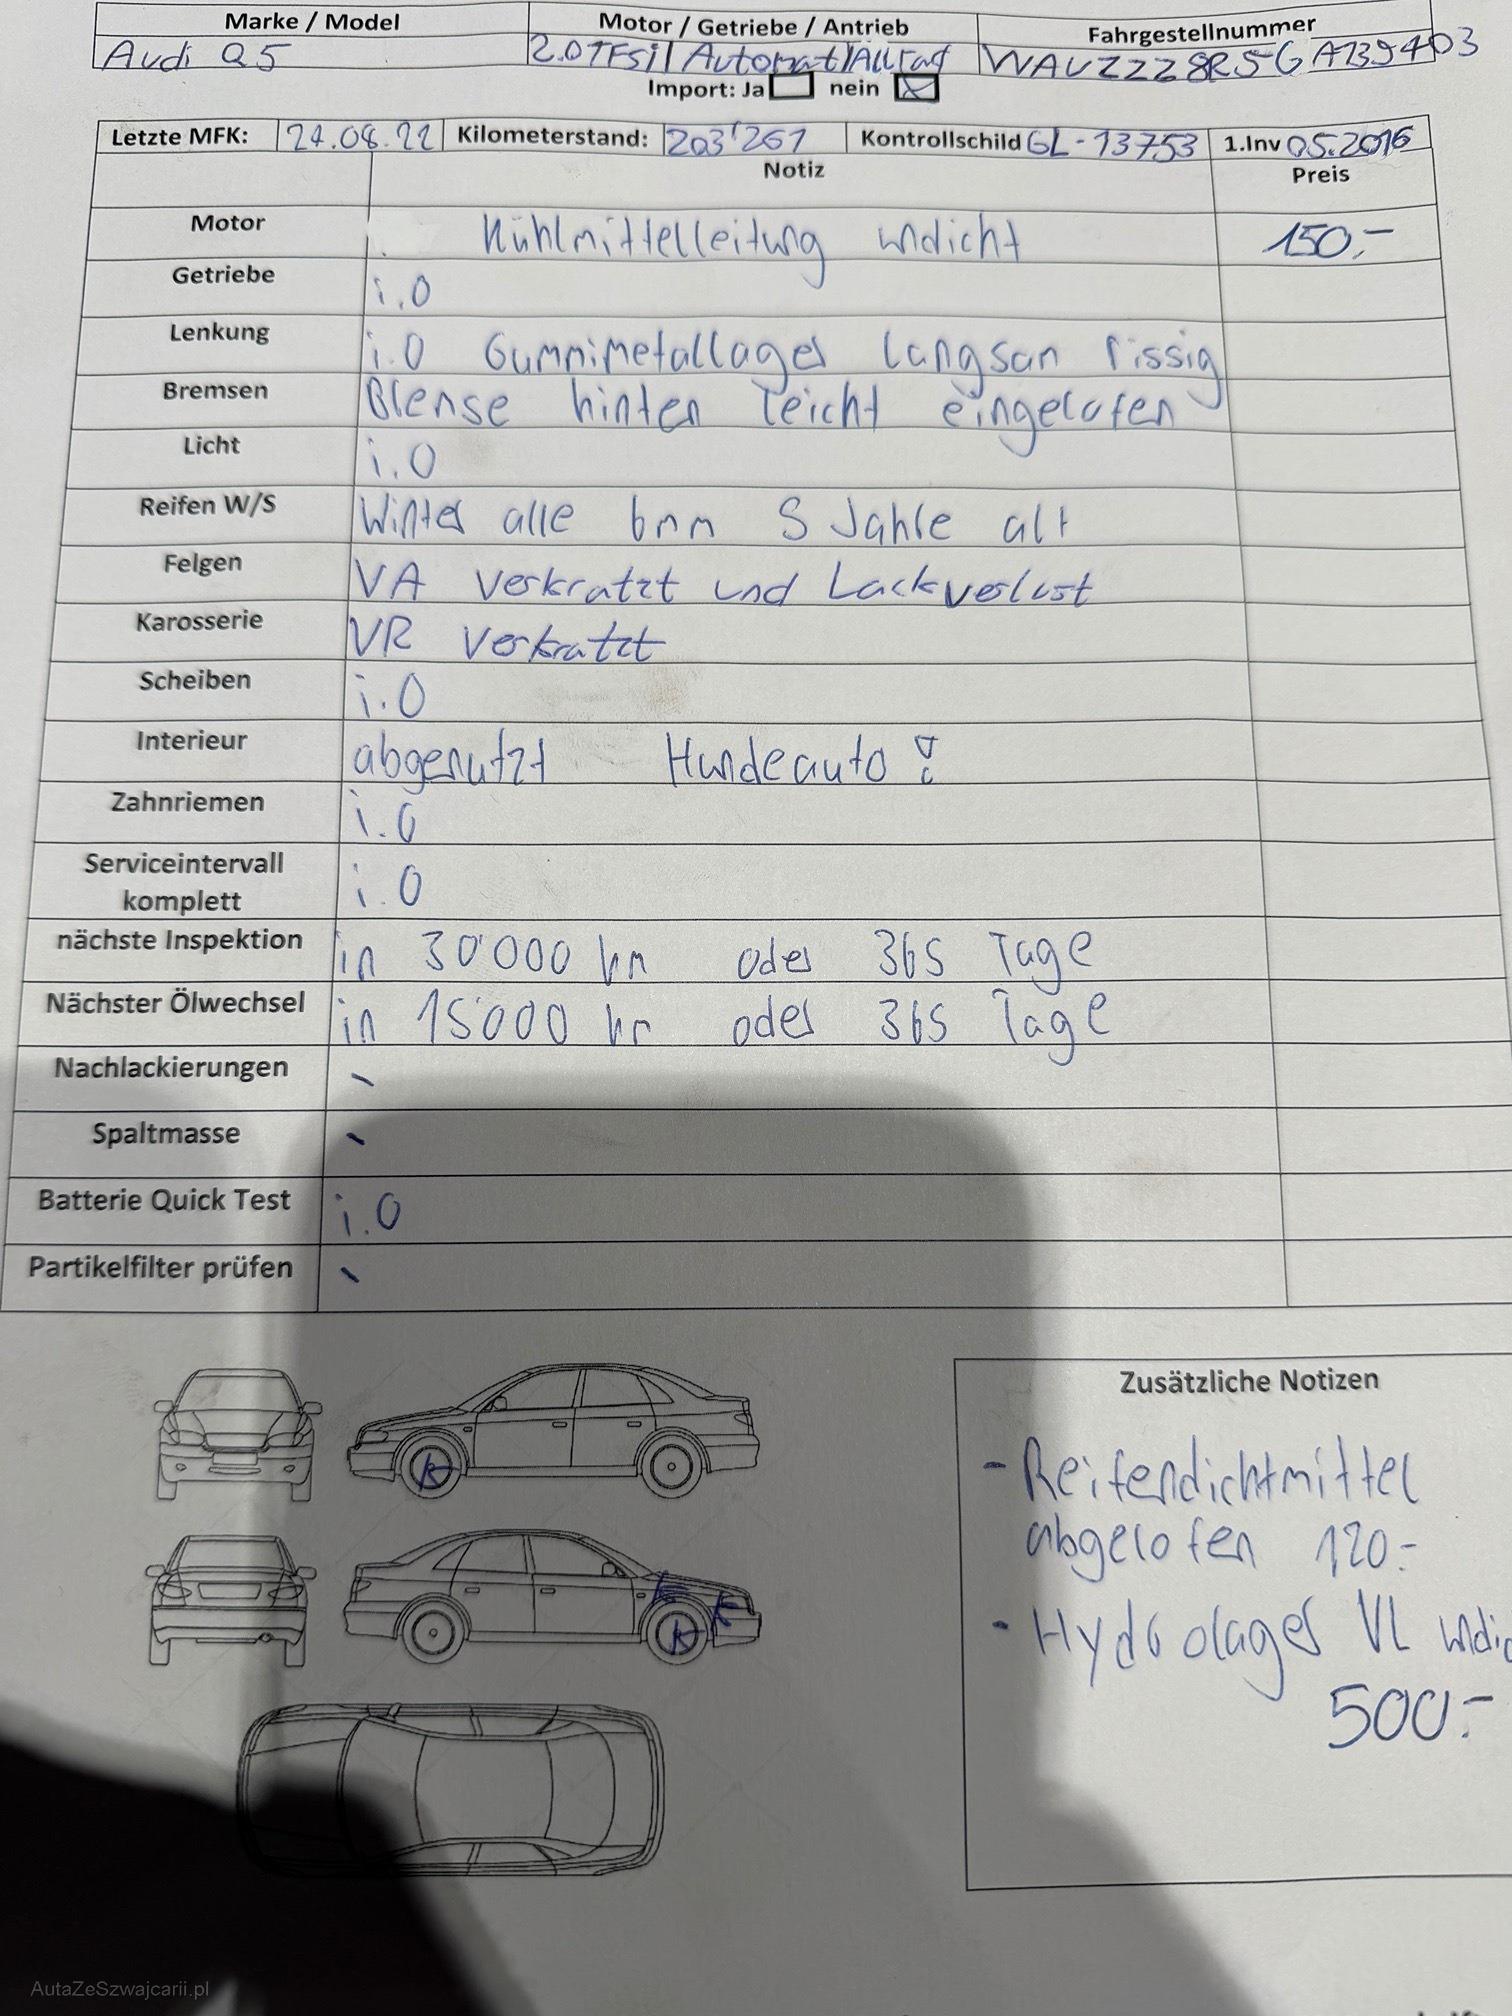 Marke / Model Motor / Getriebe / Antrieb Fahrgestellnummer
Audi Q5 2.0 TFSi / Automat / Allrad WAUZZZ8R5GA139403
Import: Ja nein
Letzte MFK: 24.08.22 Kilometerstand: 203'261 Kontrollschild GL-13753 1.Inv 05.2016
Notiz Preis
Motor Kühlmittelleitung undicht 150.-
Getriebe i.O
Lenkung i.O Gummimetallager langsam rissig
Bremsen Blense hinten leicht eingelofen
Licht i.O
Reifen W/S Winter alle 6mm 5 Jahre alt
Felgen VA verkratzt und Lackverlust
Karosserie VR verkratzt
Scheiben i.O
Interieur abgenutzt Hundeauto !
Zahnriemen i.O
Serviceintervall
komplett i.O
nächste Inspektion in 30'000 km oder 365 Tage
Nächster Ölwechsel in 15'000 km oder 365 Tage
Nachlackierungen -
Spaltmasse -
Batterie Quick Test i.O
Partikelfilter prüfen -
Zusätzliche Notizen
- Reifendichtmittel
abgelofen 120.-
- Hydrolager VL undic
500.-
K
K K
K
AutaZeSzwajcarii.pl